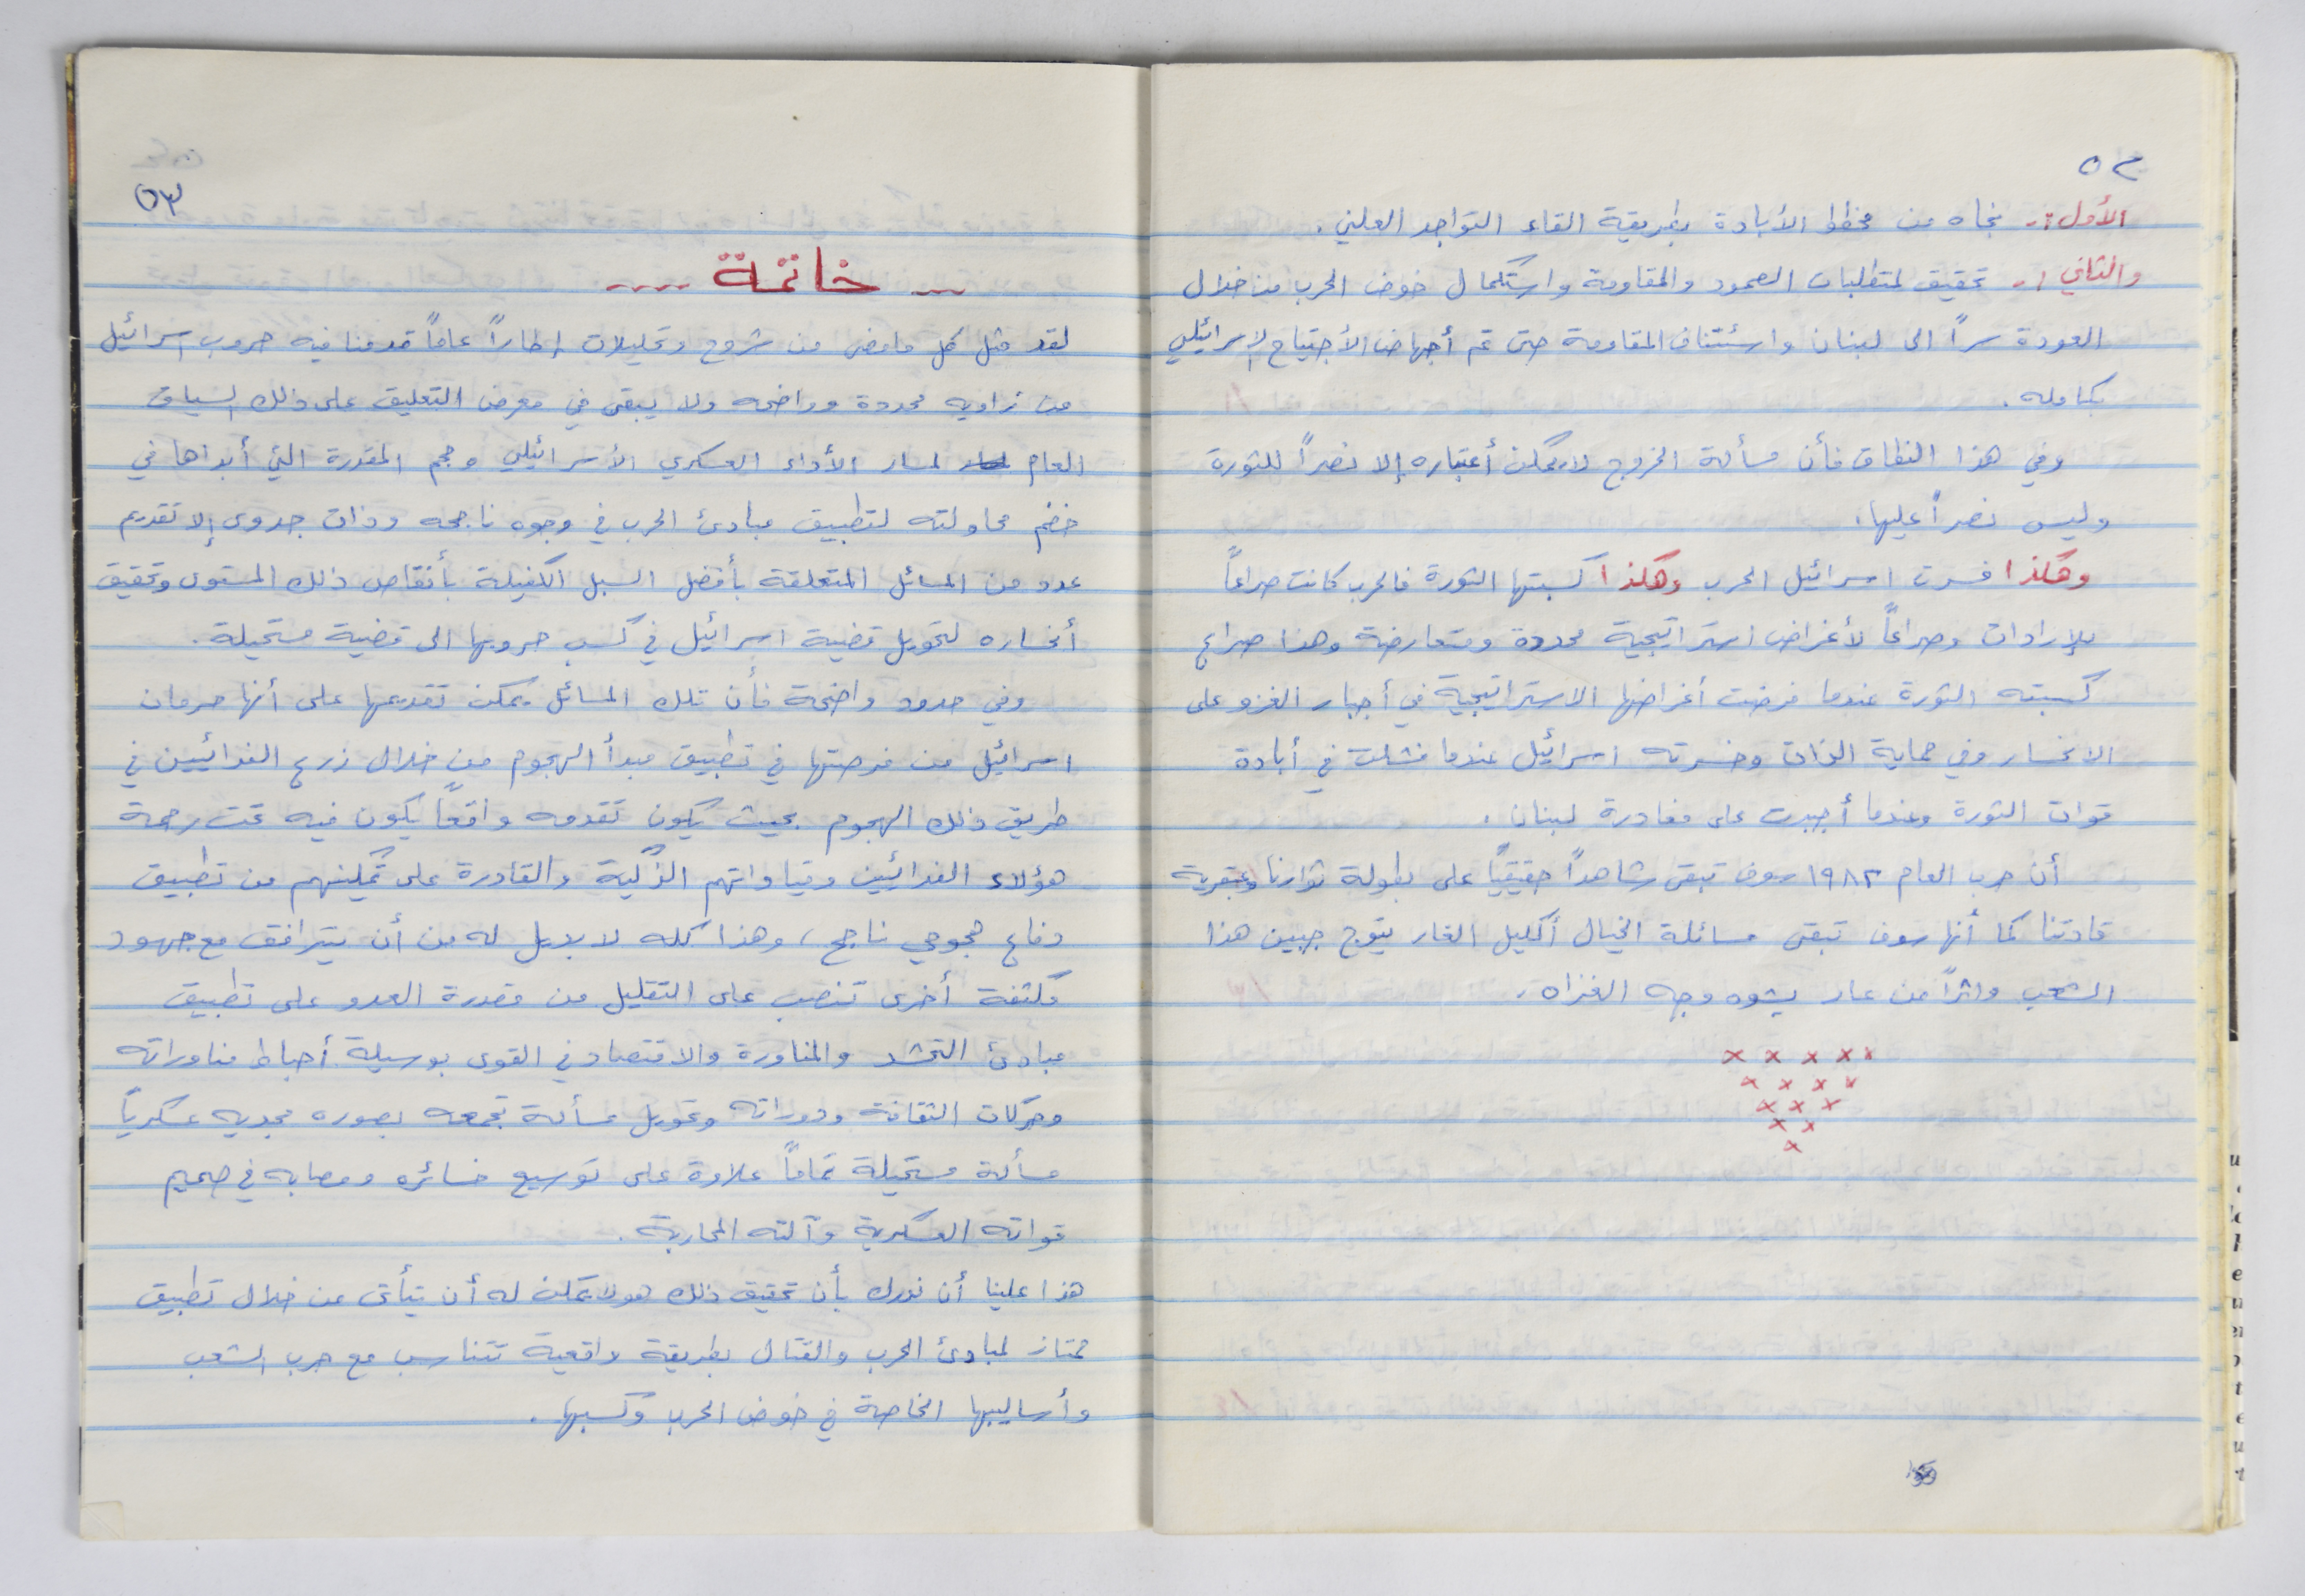 ٥٢
الأول :- نجاه من مخطط الأبادة بطريقة القاء التواجد العلني .
والثاني :- تحقيق لمتطلبات الصمود والمقاومة واستكمال خوض الحرب من خلال
العودة سراً الى لبنان واستئناف المقاومة حتى تم أجهاض الأجتياح الاسرائيلي
بكامله .
وفي هذا النطاق فأن مسألة الخروج لا يمكن أعتباره إلا نصراً للثورة
وليس نصراً عليها .
وهكذا خسرت اسرائيل الحرب وهكذا كسبتها الثورة فالحرب كانت صراعاً
للإرادات وصراعاً لأغراض استراتيجية محددة ومتعارضة وهذا صراع
كسبته الثورة عندما فرضت أغراضها الاستراتيجية في أجبار الغزو على
الانحسار وفي حماية الذات وخسرته اسرائيل عندما فشلت في أبادة
قوات الثورة وعندما أجبرت على مغادرة لبنان .
أن حرب العام ١٩٨٢ سوف تبقى شاهداً حقيقياً على بطولة ثوارنا وعبقرية
قادتنا كما أنها سوف تبقى مسائلة الخيال أكليل الغار يتوج جبين هذا
الشعب واثراً من عار يشوه وجه الغزاه .
x x x x x
x x x x
x x x
x x
x
٥٣
-- خاتمة ----
لقد مثل كل ما مضى من شروح وتحليلات إطاراً عاماً قدمنا فيه حروب اسرائيل
من زاويه محددة وواضحه ولا يبقى في معرض التعليق على ذلك السياق
العام لمسار الأداء العسكري الأسرائيلي وحجم المقدرة التي أبداها في
خضم محاولته لتطبيق مبادئ الحرب في وجوه ناجحه وذات جدوى إلا تقديم
عدد من المسائل المتعلقة بأفضل السبل الكفيلة بأنقاص ذلك المستوى وتحقيق
أنحساره لتحويل قضية اسرائيل في كسب حروبها الى قضية مستحيلة .
وفي حدود واضحة فأن تلك المسائل يمكن تقديمها على أنها حرمان
اسرائيل من فرصتها في تطبيق مبدأ الهجوم من خلال زرع الفدائيين في
طريق ذلك الهجوم بحيث يكون تقدمه واقعاً يكون فيه تحت رحمة
هؤلاء الفدائيين وقياداتهم الذكية والقادرة على تمكينهم من تطبيق
دفاع هجومي ناجح ، وهذا كله لا بديل له من أن يترافق مع جهود
مكثفة أخرى تنصب على التقليل من مقدرة العدو على تطبيق
مبادئ التحشد والمناورة والاقتصاد في القوى بوسيلة أحباط مناوراته
وحركات التفافه ودورانه وتحويل مسألة تجمعه بصوره مجديه عسكرياً
مسألة مستحيلة تماماً علاوة على توسيع خسائره ومصابه في صميم
قواته العسكرية وآلته المحاربة .
هذا علينا أن ندرك بأن تحقيق ذلك هو لا يمكن له أن يتأتى من خلال تطبيق
ممتاز لمبادئ الحرب والقتال بطريقة واقعية تتناسب مع حرب الشعب
وأساليبها الخاصة في خوض الحرب وكسبها .